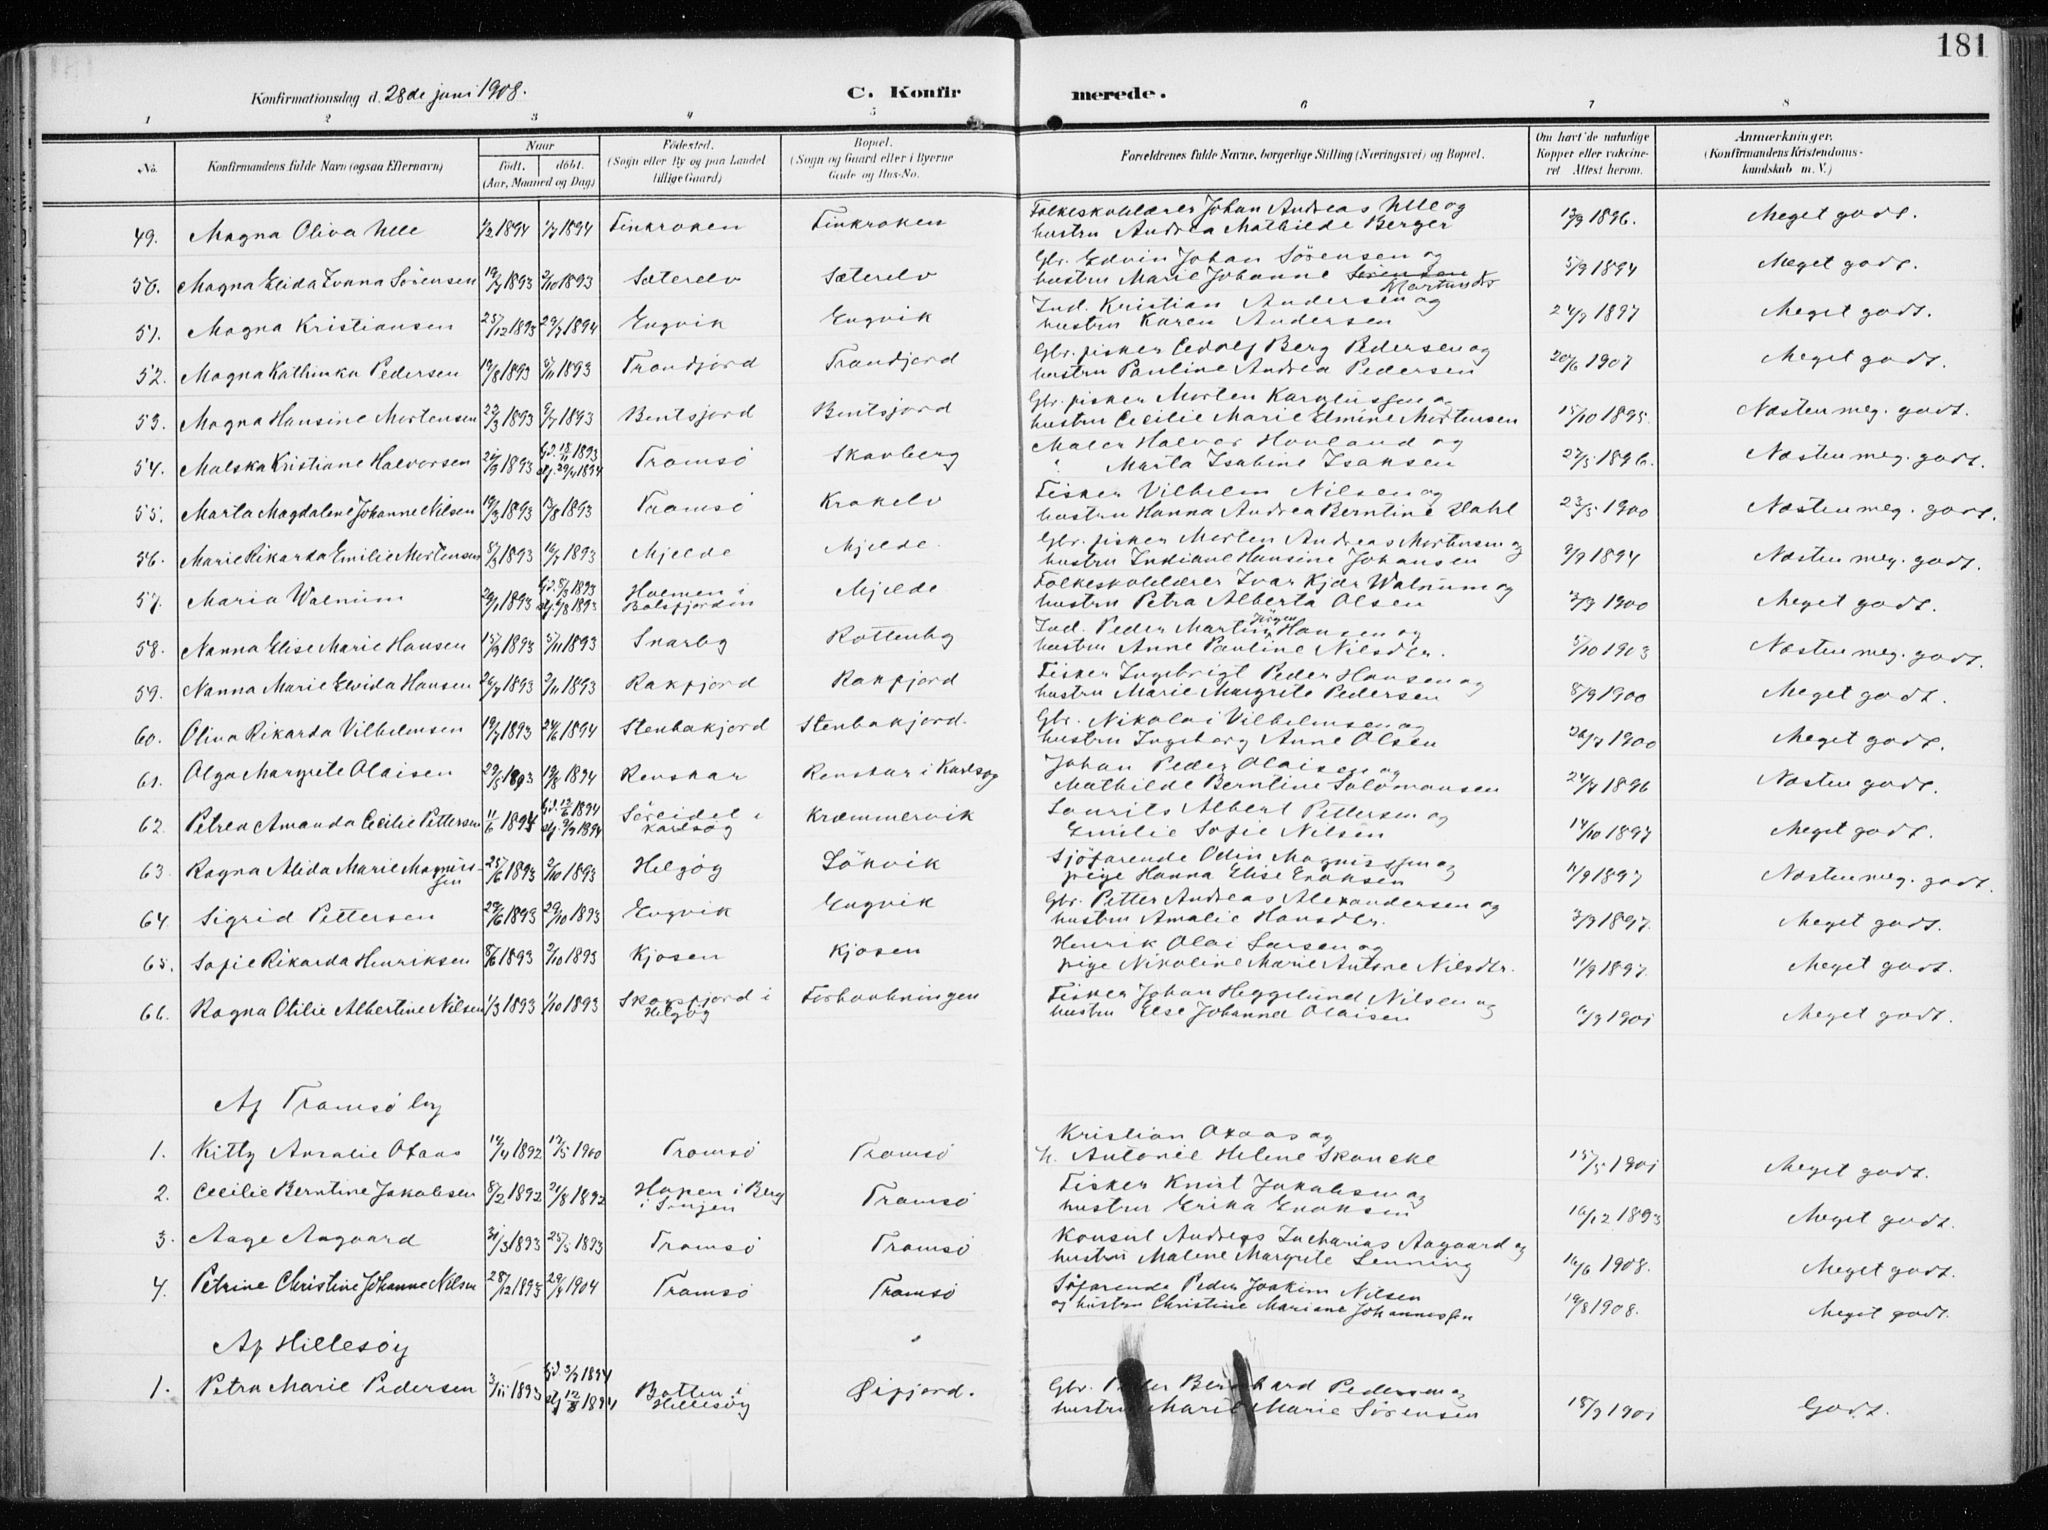 181
Konfirmationsdag d. 28de juni 1908. C. Konfirmerede.
1 2 3 4 5 6 7 8
No. Konfirmandens fulde Navn (ogsaa Efternavn) Naar födt. döbt. (Aar, Maaned og Dag) Födested. (Sogn eller By og paa Landet tillige Gaard) Bopæl. (Sogn og Gaard eller i Byerne Gade og Hus-No. Forældrenes fulde Navne, borgerlige Stilling (Næringsvei) og Bopæl. Om havt de naturlige Kopper eller vakcineret. Attest herom. Anmærkninger. (Konfirmandens Kristendomskundskab m. V.)
49. Magna Oliva Ulle 1/2 1894 1/7 1894 Finkroken Finkroken Folkeskolelærer Johan Andreas Ulle og
hustru Andrea Mathilde Berger 12/9 1896. Meget godt.
50. Magna Elida Ivanna Sörensen 19/7 1893 2/10 1893 Sæterelv Sæterelv Gbr. Edvin Johan Sörensen og
hustru Marie Johanne Sörensen 5/9 1894 Meget godt.
51. Magna Kristiansen 25/12 1893 29/7 1894 Engvik Engvik Ind. Kristian Andersen og
hustru Karen Andersen 24/9 1897 Meget godt.
52. Magna Kathinka Pedersen 19/8 1893 5/11 1893 Trondjord Trondjord Gbr. fisker Adolf Berg Pedersen og
hustru Pauline Andrea Pedersen 20/6 1907 Meget godt.
53. Magna Hansine Mortensen 22/3 1893 9/7 1893 Bentsjord Bentsjord Gbr. fisker Morten og
hustru Cecilie Marie Elmine Mortensen 15/10 1895. Næsten meg. godt.
54. Malska Kristiane Halvorsen 21/9 1893 Tromsö Skavberg Maler Halvor Hovland og
Marta Isabine Isaksen 27/5 1896. Næsten meg. godt.
55. Marta Magdalene Johanne Nilsen 19/3 1893 13/8 1893 Tromsö Krokelv Fisker Vilhelm Nilsen og
hustru Hanna Andrea Berntine Dahl 23/5 1900 Næsten meg. godt.
56. Marie Rikarda Emilie Mortensen 5/3 1893 16/7 1893 Mjelde Mjelde. Gbr. fisker Morten Andreas Mortensen og
hustru Indiane Hansine Johansen 9/9 1894 Næsten meg. godt.
57. Maria Walnum 26/1 1893 Gd. 5/3 1893 Holmen i
Balsfjorden Mjelde Folkeskolelærer Ivar Kjær Walnum og
hustru Petra Alberta Olsen 3/9 1900 Meget godt.
58. Nanna Elise Marie Hansen 15/9 1893 5/11 1893 Snarby Rottenby Ind. Peder Martin Jörgen Hansen og
hustru Anne Pauline Nilsdtr. 5/10 1903 Næsten meg. godt.
59. Nanna Marie Elvida Hansen 26/7 1893 2/11 1893 Rakfjord Rakfjord Fisker Ingebrigt Peder Hansen og
hustru Marie Margrete Pedersen 8/9 1900 Meget godt.
60. Olina Rikarda Vilhelmsen 19/7 1893 24/6 1894 Stenbakjord Stenbakjord. Gbr. Nikolai Vilhelmsen og
hustru Ingeborg Anne Olsen 26/7 1900 Meget godt.
61. Olga Margrete Olaisen 29/5 1893 19/8 1894 Renskar Renskar i Karlsøy Johan Peder Olaisen og
Mathilde Berntine Salomonsen 24/7 1896 Næsten godt.
62. Petrea Amanda Cecilie Pettersen 11/6 1894 Gd. 12/6 1894 Söreidet i
Karlsøy Kræmmervik Laurits Albert Pettersen og
Emilie Sofie Nilsen 14/10 1897 Meget godt.
63. Ragna Alida Marie Magnus-
sen 25/6 1893 2/10 1893 Helgøy Lökvik Sjöfarende Odin Magnussen og
pige Hanna Elise Enoksen 11/9 1897 Næsten meg. godt.
64. Sigrid Pettersen 29/6 1893 29/10 1893 Engvik Engvik Gbr. Petter Andreas Alexandersen og
hustru Amalie Hansdtr. 3/9 1897. Meget godt.
65. Sofie Rikarda Henriksen 8/6 1893 2/10 1893 Kjosen Kjosen Henrik Olai Larsen og
pige Nikoline Marie Antone Nilsdtr. 11/9 1897. Meget godt.
66. Ragna Otilie Albertine Nilsen 1/3 1893 1/10 1893 Skarsfjord i
Helgøy Forhaabningen Fisker Johan Heggelund Nilsen og
hustru Else Johanna Olaisen 6/9 1901 Meget godt.
Af Tromsö by
1. Kitty Amalie Otaas 14/4 1892 13/5 1900 Tromsö Tromsö Kristian Otaas og
h. Antonie Helene Skancke 15/5 1901 Meget godt.
2. Cecilie Berntine Jakobsen 8/2 1892 21/8 1892 Hopen i Berg
i Senjen Tromsö Fisker Knut Jakobsen og
hustru Erika Enoksen 16/12 1893 Meget godt.
3. Aage Aagaard 31/3 1893 25/5 1893 Tromsö Tromsö Konsul Andreas Zacharias Aagaard og
hustru Malene Margrete Lenning 16/6 1908. Meget godt.
4. Petrine Christine Johanne Nilsen 28/12 1893 29/4 1904 Tromsö Tromsö Söfarende Peder Joakim Nilsen
og hustru Christine Mariane Johannessen 19/8 1908. Meget godt.
Af Hillesøy
1. Petra Marie Pedersen 3/11 1893 Gd. 3/7 1894 Botten i
Hillesøy Øifjord. Gbr. Peder Bernhard Pedersen og
hustru Marit Marie Sørensen 18/9 1901 Godt.